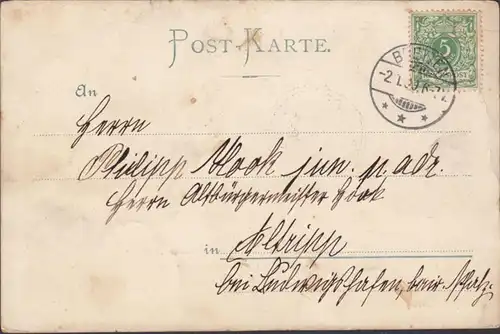 POST-KARTE.
5
An
Herrn
Philipp Hook jun. p. adr.
Herrn Altbürgermeister Hook
in Altripp
bei Ludwigshafen, bair. Pfalz.